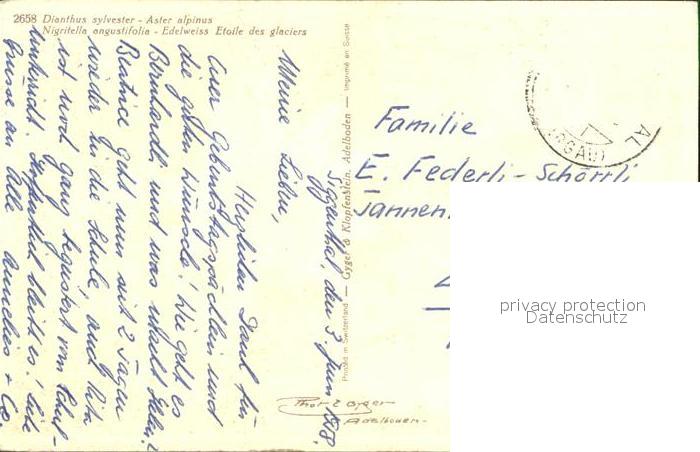 2658 Dianthus sylvester - Aster alpinus
Nigritella angustifolia - Edelweiss Etoile des glaciers
Siggenthal, den 3. Juni 1958.
Meine Lieben,
Herzlichen Dank für
Euer Geburtstagspäcklein und
die guten Wünsche! Wie geht es
Bernhardli und was macht
Beatrice geht nun seit 2 Tagen
wieder in die Schule, und
ist noch ganz begeistert vom Schul-
unterricht. bleibt es! Liebe
Grüsse an Alle Annelies + Co.
Printed in Switzerland — Gyger & Klopfenstein, Adelboden — Imprimé en Suisse
Photo Gyger
Adelboden
Familie
E. Federli-Schörrli
Tannen
AL
(ARGAU)
privacy protection
Datenschutz